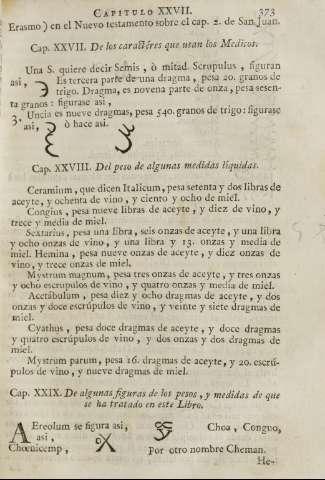 CAPITULO XXVII. 373
Erasmo) en el Nuevo testamento sobre el cap. 2. de San Juan.
Cap. XXVII. De los caractéres que usan los Medicos.
Una S. quiere decir Semis, ò mitad. Scrupulus, figuran
asi, Es tercera parte de una dragma, pesa 20. granos de
trigo. Dragma, es novena parte de onza, pesa sesen-
ta granos: figurase asi,
Uncia es nueve dragmas, pesa 540. granos de trigo: figurase
3. asi, ò hace asi.
Cap. XXVIII. Del peso de algunas medidas liquidas.
Ceramium, que dicen Italicum, pesa setenta y dos libras de
aceyte, y ochenta de vino, y ciento y ocho de miel.
Congius, pesa nueve libras de aceyte, y diez de vino, y
trece y media de miel.
Sextarius, pesa una libra, seis onzas de aceyte, y una libra
y ocho onzas de vino, y una libra y 13. onzas y media de
miel. Hemina, pesa nueve onzas de aceyte, y diez onzas de
vino, y trece onzas de miel.
Mystrum magnum, pesa tres onzas de aceyte, y tres onzas
y ocho escrupulos de vino, y quatro onzas y media de miel.
Acetábulum, pesa diez y ocho dragmas de aceyte, y dos
onzas y doce escrúpulos de vino, y veinte y siete dragmas de
miel.
Cyathus, pesa doce dragmas de aceyte, y doce dragmas
y quatro escrúpulos de vino, y dos onzas y dos dragmas de
miel.
Mystrum parum, pesa 16. dragmas de aceyte, y 20. escrú-
pulos de vino, y nueve dragmas de miel.
Cap. XXIX. De algunas figuras de los pesos, y medidas de que
se ha tratado en este Libro.
AEreolum se figura asi, Choa, Conguo,
asi,
Chœnicemp, Por otro nombre Cheman.
He-